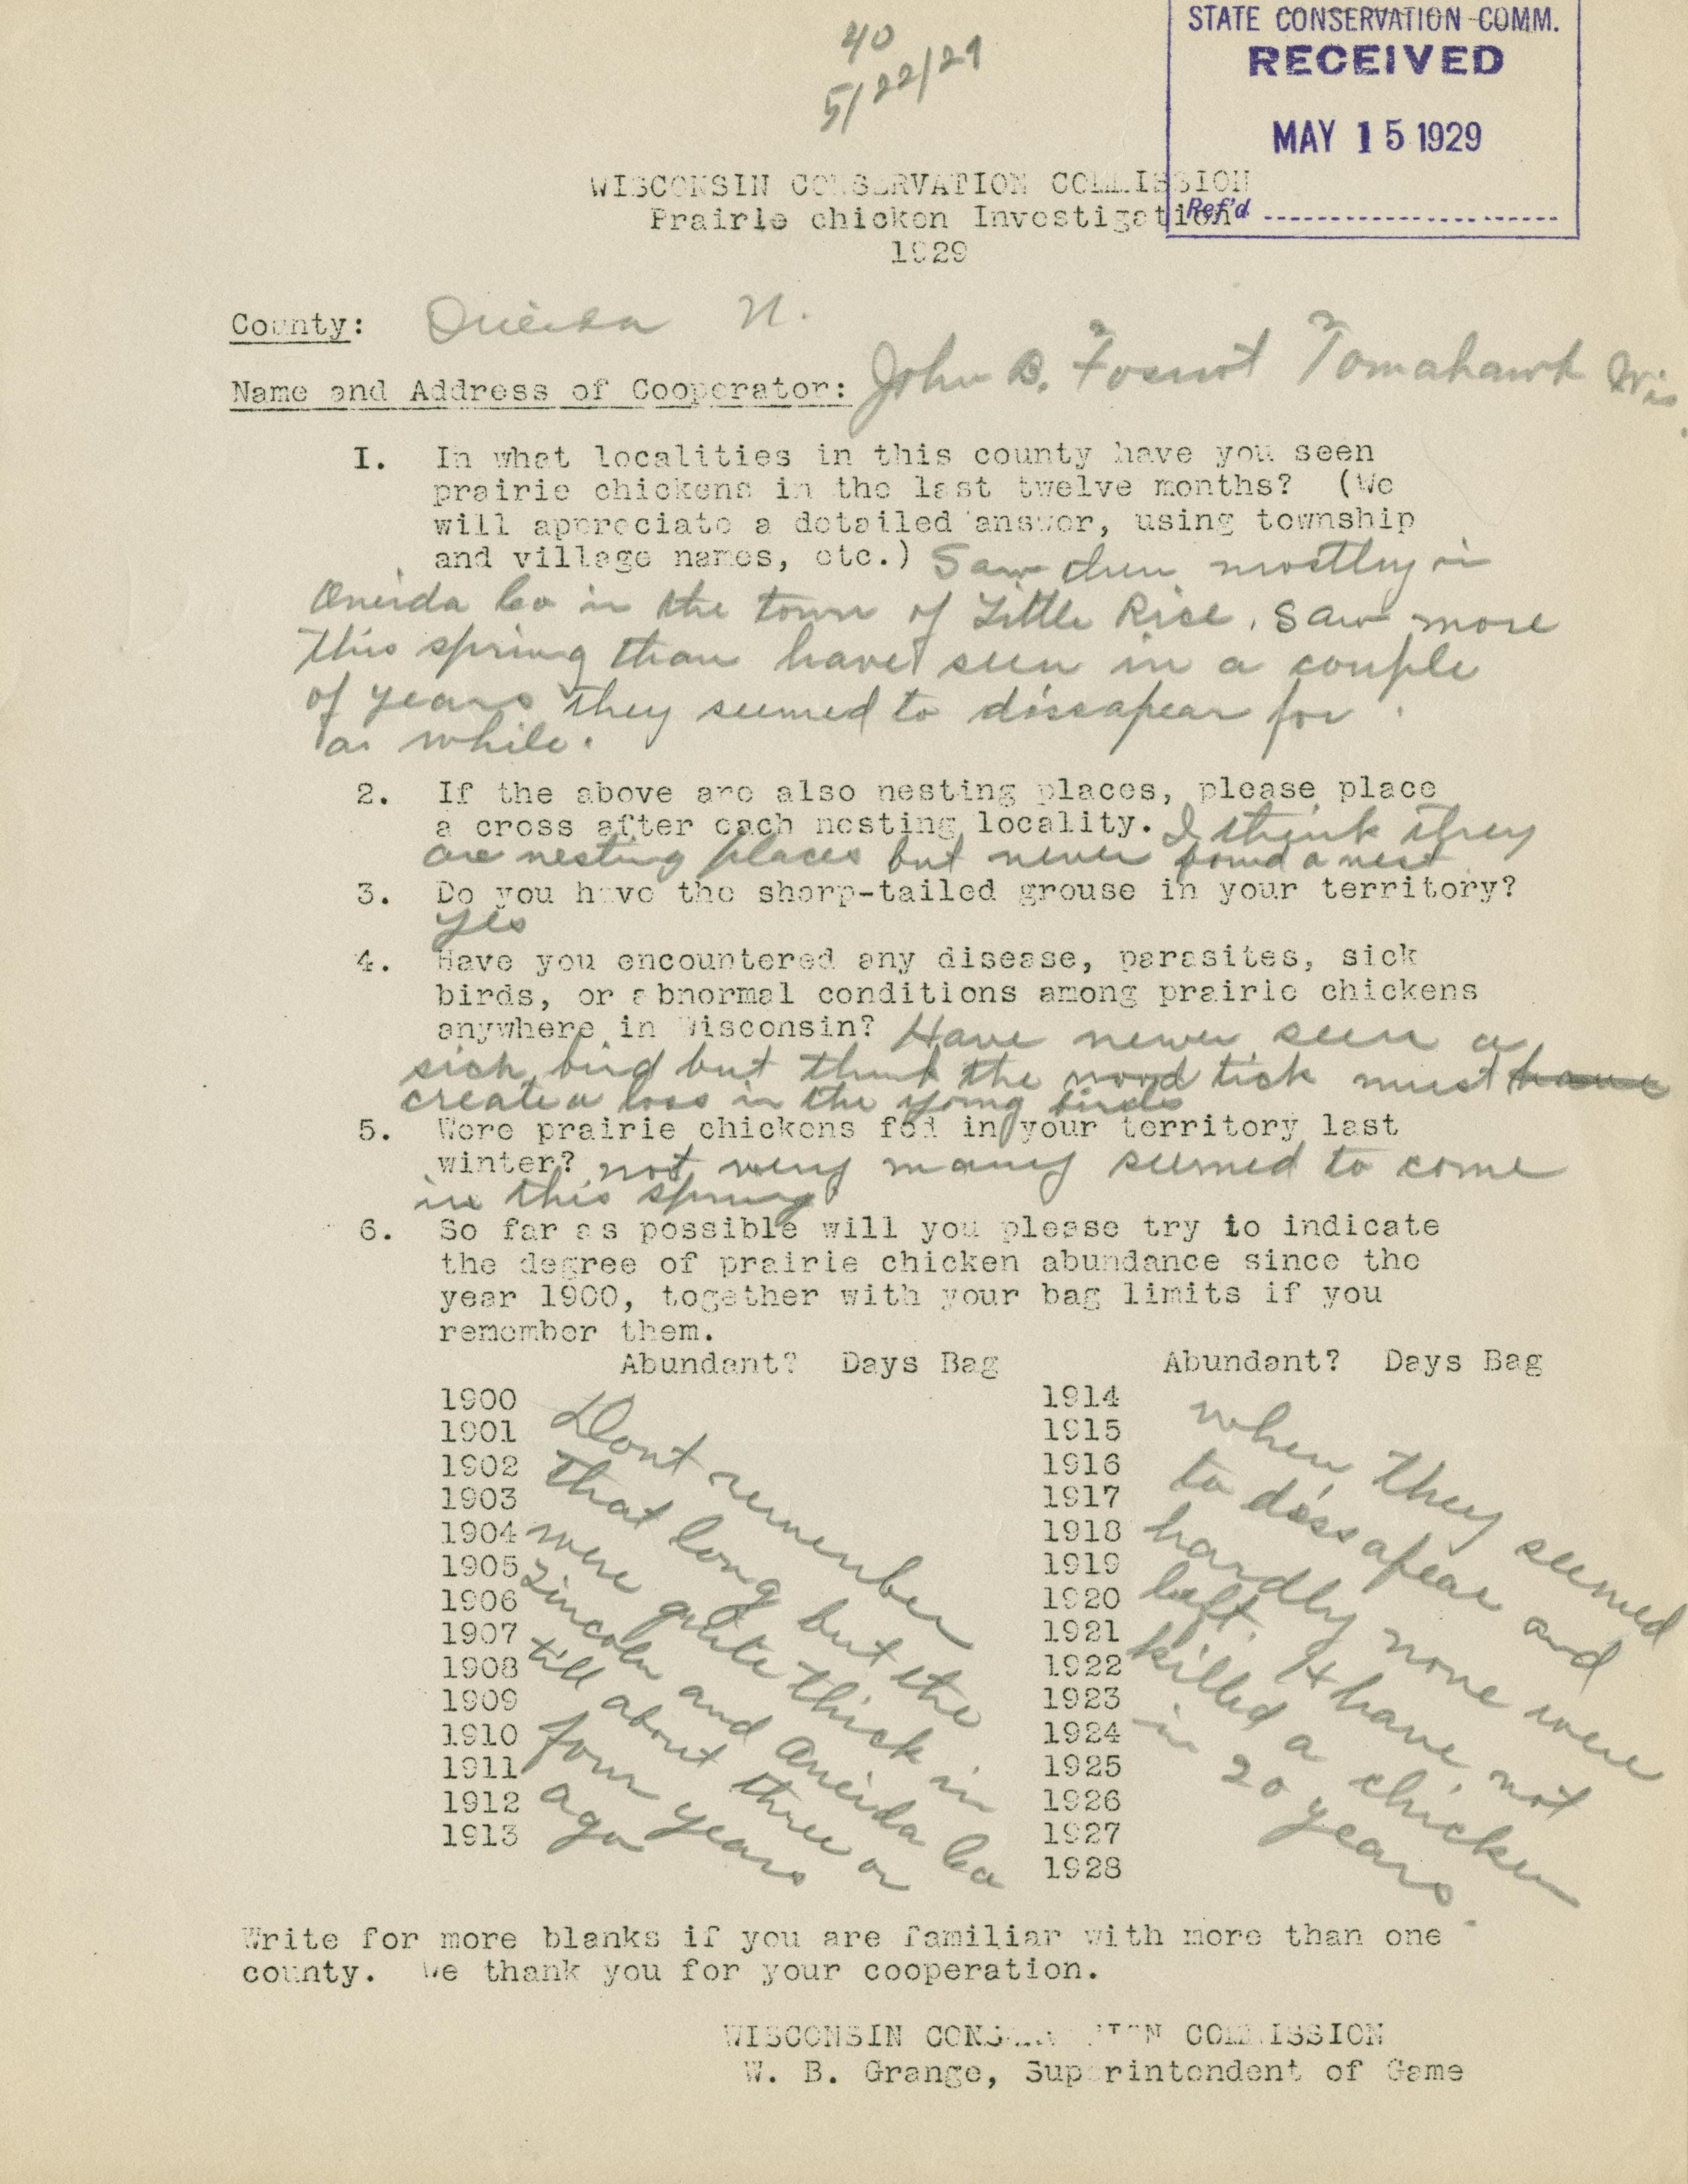 40
5/22/29
STATE CONSERVATION COMM.
RECEIVED
MAY 15 1929
Ref'd
WISCONSIN CONSERVATION COMMISSION
Prairie chicken Investigation
1929
County: Oneida N.
Name and Address of Cooperator: John B. Tomahawk Wis
I. In what localities in this county have you seen
prairie chickens in the last twelve months? (We
will appreciate a detailed answer, using township
and village names, etc.) Saw mostly in
Oneida Co in the town of Little Rice. Saw more
this spring than have seen in a couple
of years they seemed to dissapear for
a while.
2. If the above are also nesting places, please place
a cross after each nesting locality. I think they
are nesting places but never found a nest
3. Do you have the sharp-tailed grouse in your territory?
yes
4. Have you encountered any disease, parasites, sick
birds, or abnormal conditions among prairie chickens
anywhere in Wisconsin? Have never seen a
sick bird but think the wood tick must have
create a loss in the young birds
5. Were prairie chickens fed in your territory last
winter? not very many seemed to come
in this spring
6. So far as possible will you please try to indicate
the degree of prairie chicken abundance since the
year 1900, together with your bag limits if you
remember them.
Abundant? Days Bag Abundant? Days Bag
1900
1901
1902
1903
1904
1905
1906
1907
1908
1909
1910
1911
1912
1913
Dont remember
that long but the
were quite thick in
Lincoln and Oneida Co
till about three or
four years
ago
1914
1915
1916
1917
1918
1919
1920
1921
1922
1923
1924
1925
1926
1927
1928
when they seemed
to dissapear and
hardly none were
left. I have not
killed a chicken
in 20 years.
Write for more blanks if you are familiar with more than one
county. We thank you for your cooperation.
WISCONSIN CONSERVATION COMMISSION
W. B. Grange, Superintendent of Game